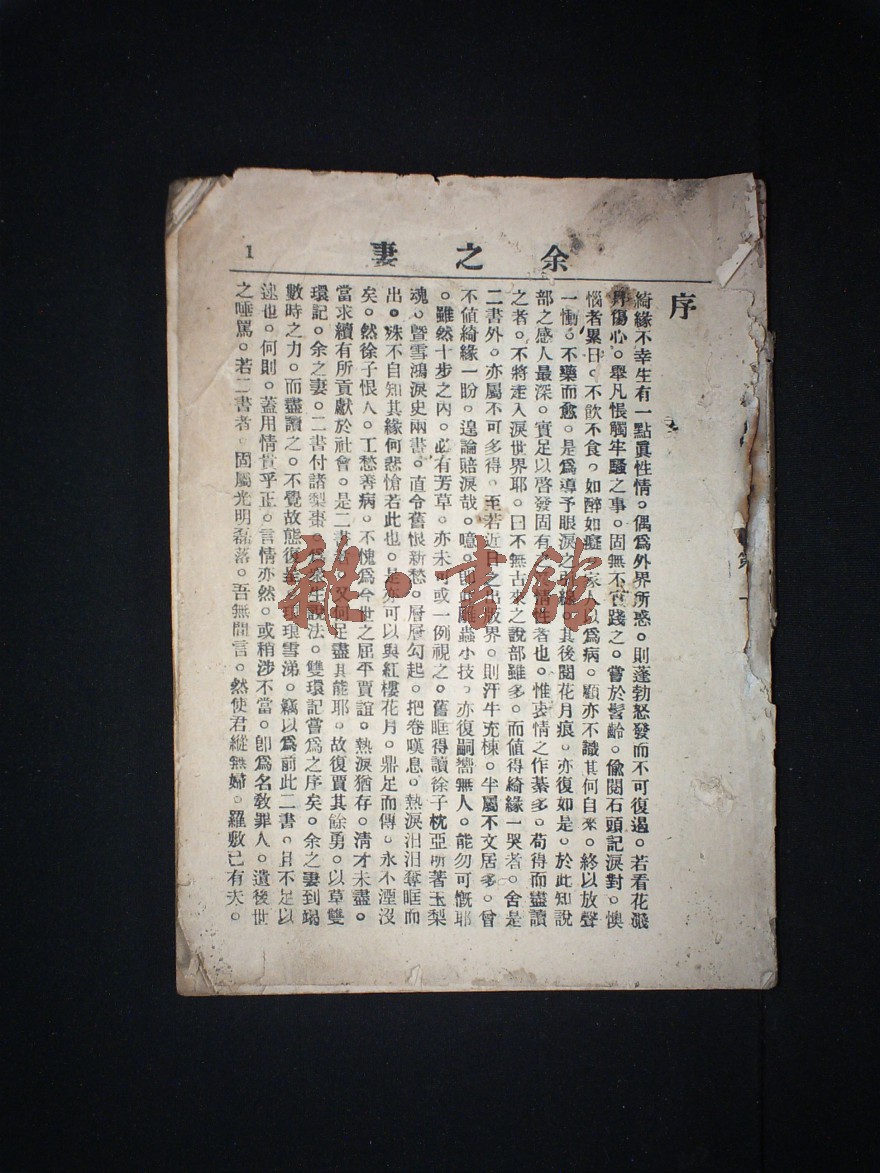 余之妻
1
序
綺緣不幸生有一點眞性情。偶爲外界所惑。則蓬勃怒發而不可復遏。若看花濺
月傷心。舉凡悵觸牢騷之事。固無不實踐之。嘗於髫齡。偸閱石頭記淚對。懊
惱者累日。不飲不食。如醉如癡。家人以爲病。顧亦不識其何自來。終以放聲
一慟。不藥而愈。是爲導予眼淚之。其後閱花月痕。亦復如是。於此知說
部之感人最深。實足以啓發固有之情性者也。惟哀情之作綦多。苟得而盡讀
之者。不將走入淚世界耶。曰不無古來之說部雖多。而値得綺緣一哭者。舍是
二書外。亦屬不可多得。至若近日之出版界。則汗牛充棟。半屬不文居多。曾
不値綺緣一盼。遑論賠淚哉。噫。卽此雕蟲小技。亦復嗣嚮無人。能勿可慨耶
。雖然十步之內。必有芳草。亦未可或一例視之。舊眶得讀徐子枕亞所著玉梨
魂。曁雪鴻淚史兩書。直令舊恨新愁。層層勾起。把卷嘆息。熱淚汨汨奪眶而
出。殊不自知其緣何悲愴若此也。是亦可以與紅樓花月。鼎足而傳。永不湮沒
矣。然徐子恨人。工愁善病。不愧爲今世之屈平賈誼。熱淚猶存。淸才未盡。
當求續有所貢獻於社會。是二書者。又何足盡其能耶。故復賈其餘勇。以草雙
環記。余之妻。二書付諸梨棗。爲衆生說法。雙環記嘗爲之序矣。余之妻到竭
數時之力。而盡讀之。不覺故態復。琅雪涕。竊以爲前此二書。且不足以
逑也。何則。蓋用情貴乎正。言情亦然。或稍涉不當。卽爲名敎罪人。遺後世
之唾罵。若二書者。固屬光明磊落。吾無間言。然使君縱無婦。羅敷已有夫。